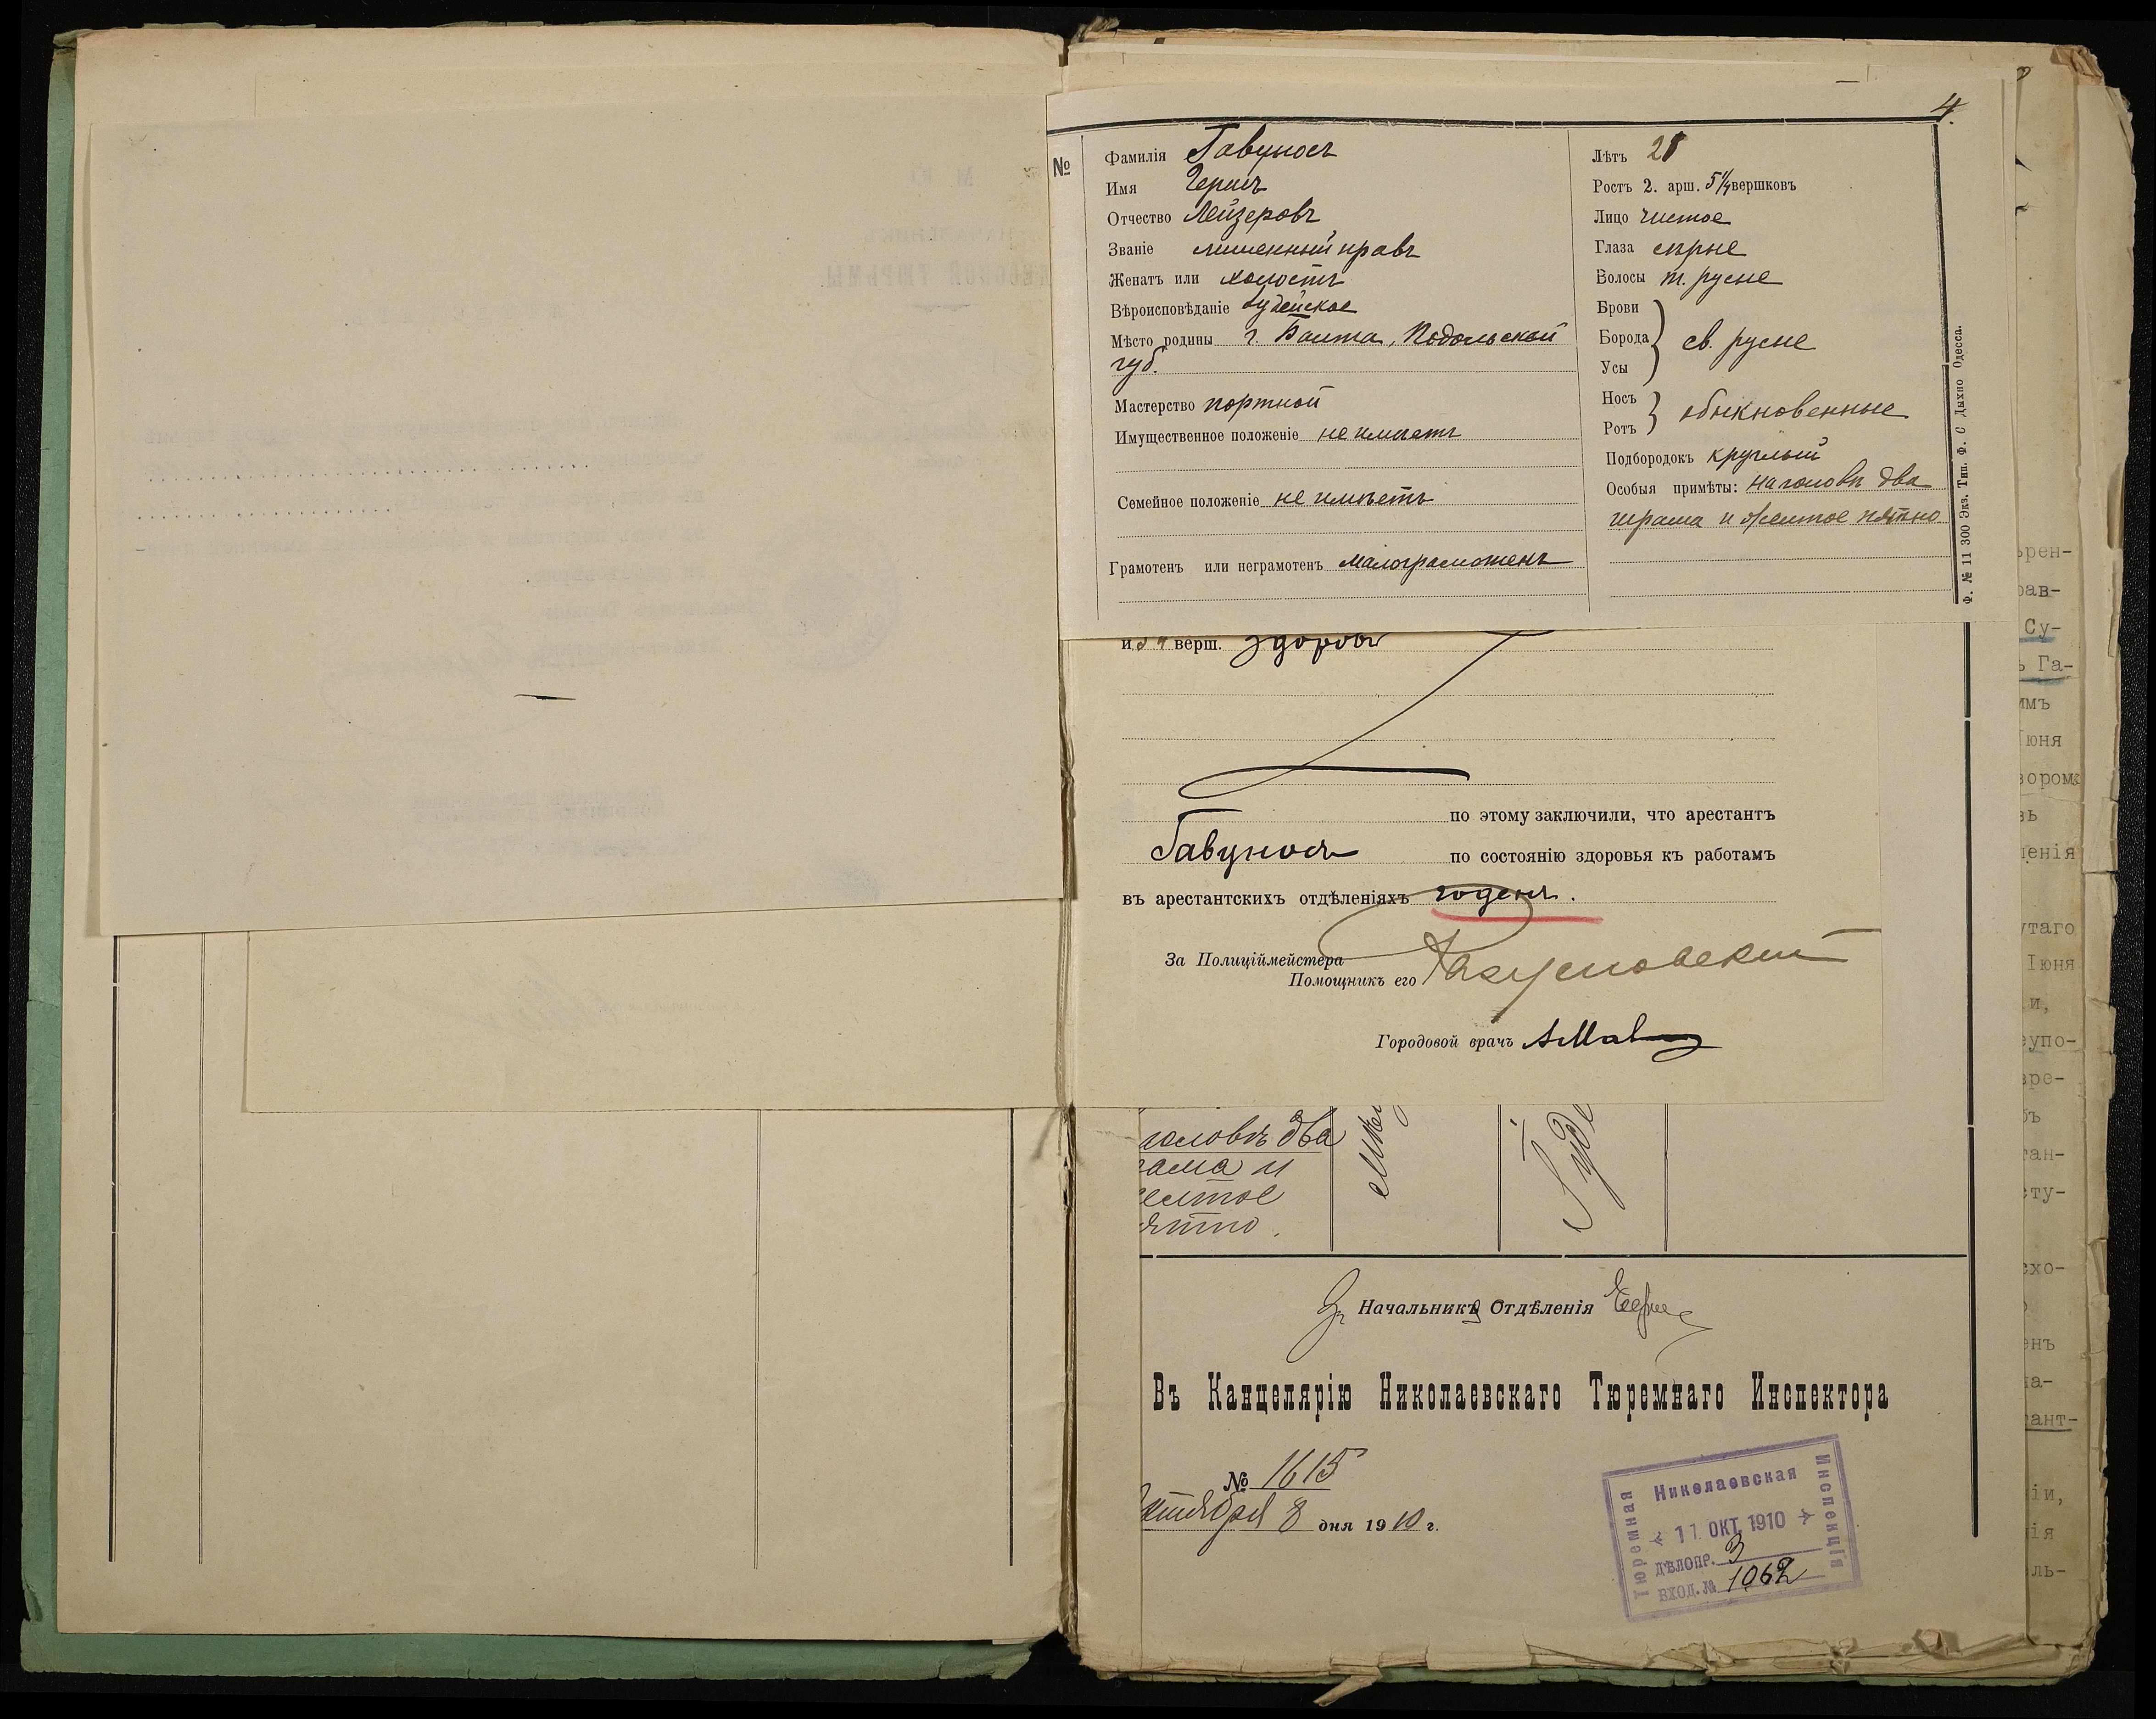 4.
№
Фамилія Гавунось
Имя Гершъ
Отчество Лейзеровъ
Званіе лишенный правъ
Женатъ или холостъ
Вѣроисповѣданіе Іудейское
Мѣсто родины г. Балта, Подольской
губ.
Мастерство портной
Имущественное положеніе не имѣетъ
Семейное положеніе не имѣетъ
Грамотенъ или неграмотенъ малограмотенъ
Лѣтъ 28
Ростъ 2. арш. 5 1/4 вершковъ
Лицо чистое
Глаза сѣрые
Волосы т. русые
Брови
Борода св. русые
Усы
Носъ
обыкновенные
Ротъ
Подбородокъ круглый
Особыя примѣты: на головѣ два
шрама и желтое пятно
Ф. № 11 300 Экз. Тип. Ф. С Дыхно Одесса.
и верш. здоровъ
по этому заключили, что арестантъ
Гавунось по состоянію здоровья къ работамъ
въ арестантскихъ отдѣленіяхъ годенъ.
За Полиціймейстера
Помощникъ его
Городовой врачъ
головѣ два
рама и
желтое
ятно.
Іуде
За Начальника Отдѣленія
Въ Канцелярію Николаевскаго Тюремнаго Инспектора
№ 1615
ктября 8 дня 1910 г.
Тюремная Николаевская Инспекція
11 ОКТ. 1910
ДѢЛОПР. 3
ВХОД. № 1062
ѣрен-
рав-
Су-
ъ Га-
имъ
Іюня
воромъ
въ
ленія
утаго
Іюня
и,
еупо-
вре-
бъ
тан-
сту-
схо-
енъ
на-
тант-
ніи,
нія
ль-